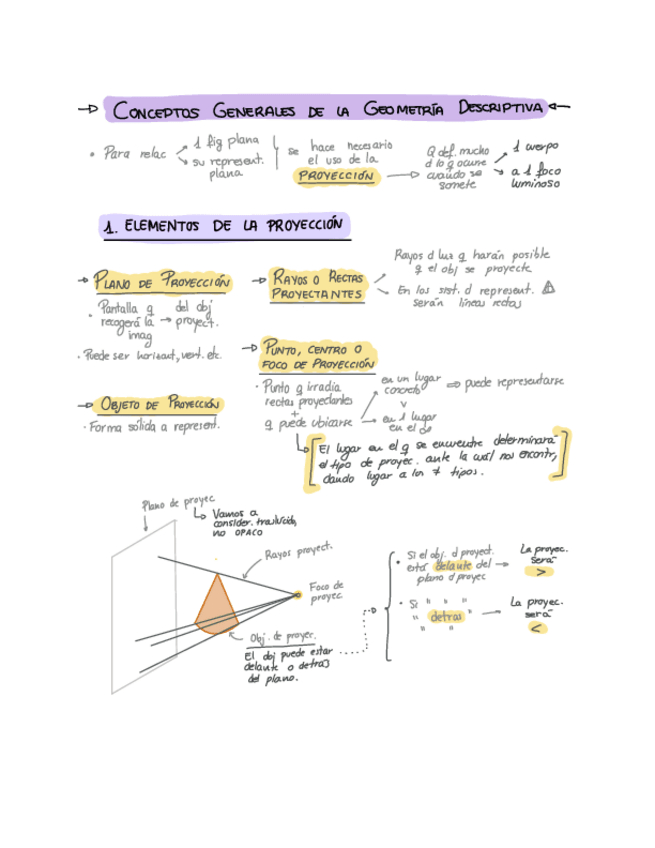 CONCEPTOS GENERALES DE LA GEOMETRÍA DESCRIPTIVA
• Para relac
1 fig plana
su represent.
plana
se hace necesario
el uso de la
PROYECCIÓN
Q def. mucho
d lo q ocurre
cuando se
somete
1 cuerpo
a 1 foco
luminoso
1. ELEMENTOS DE LA PROYECCIÓN
PLANO DE PROYECCIÓN
• Pantalla q
recogerá la
imag
del obj
proyect.
• Puede ser horizont, vert. etc.
OBJETO DE PROYECCIÓN
• Forma sólida a represent.
RAYOS O RECTAS
PROYECTANTES
Rayos d luz q harán posible
q el obj se proyecte
En los sist. d represent.
serán líneas rectas
PUNTO, CENTRO O
FOCO DE PROYECCIÓN
• Punto q irradia
rectas proyectantes
+
q puede ubicarse
en un lugar
concreto
⇒ puede representarse
v
en 1 lugar
en el ∞
El lugar en el q se encuentre determinará
el tipo de proyec. ante la cual nos encontr,
dando lugar a los ≠ tipos.
Plano de proyec
Vamos a
consider. traslucido,
no OPACO
Rayos proyect.
Foco de
proyec.
Obj. de proyec.
El obj puede estar
delante o detrás
del plano.
• Si el obj. d proyect.
está delante del
plano d proyec
La proyec.
será
>
• Si " " "
" detras "
" "
La proyec.
será
<